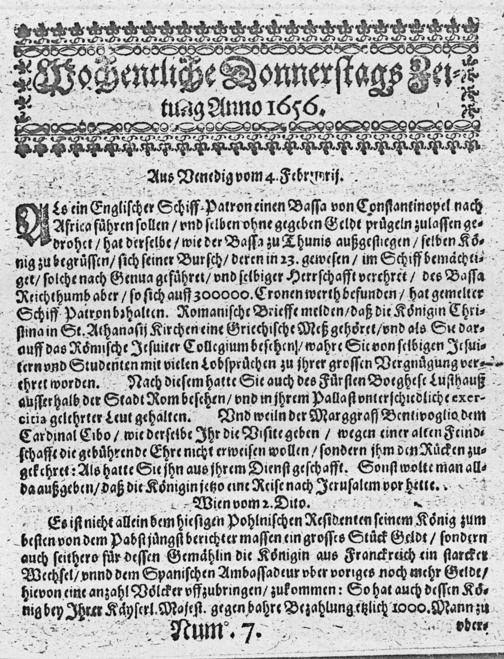 Wochentliche Donnerstags Zei-
tung Anno 1656.
Aus Venedig vom 4. Februarij.
ALs ein Englischer Schiff-Patron einen Bassa von Constantinopel nach
Africa führen sollen / vnd selben ohne gegeben Geldt prügeln zulassen ge-
drohet / hat derselbe / wie der Bassa zu Thunis außgestiegen / selben Kö-
nig zu begrüssen / sich seiner Bursch / deren in 23. gewesen / im Schiff bemächti-
get / solche nach Genua geführet / vnd selbiger Herrschafft verehret / des Bassa
Reichthumb aber / so sich auff 300000. Cronen werth befunden / hat gemelter
Schiff Patron behalten. Romanische Brieffe melden / daß die Königin Chri-
stina in St. Athanasij Kirchen eine Griechische Meß gehöret / vnd als Sie dar-
auff das Römische Jesuiter Collegium besehen / wahre Sie von selbigen Jesui-
tern vnd Studenten mit vielen Lobsprüchen zu jhrer grossen Vergnügung ver-
ehret worden. Nach diesem hatte Sie auch des Fürsten Borghese Lusthauß
ausserhalb der Stadt Rom besehen / vnd in jhrem Pallast unterschiedliche exer-
citia gelehrter Leut gehalten. Vnd weiln der Marggraff Bentivoglio dem
Cardinal Cibo / wie derselbe Jhr die Visite geben / wegen einer alten Feind-
schafft die gebührende Ehre nicht erweisen wollen / sondern jhm den Rücken zu-
gekehret: Als hatte Sie jhn aus jhrem Dienst geschafft. Sonst wolte man all-
da außgeben / daß die Königin jetzo eine Reise nach Jerusalem vor hette.
Wien vom 2. Dito.
Es ist nicht allein dem hiesigen Pohlnischen Residenten seinem König zum
besten von dem Pabst jüngst berichter massen ein grosses Stück Geldt / sondern
auch seithero für dessen Gemählin die Königin aus Franckreich ein starcker
Wechsel / vnnd dem Spanischen Ambassadeur vber voriges noch mehr Geldt /
hievon eine anzahl Völcker vffzubringen / zukommen: So hat auch dessen Kö-
nig bey Jhrer Käyserl. Majest. gegen bahre Bezahlung etzlich 1000. Mann zu
Num. 7. vber-